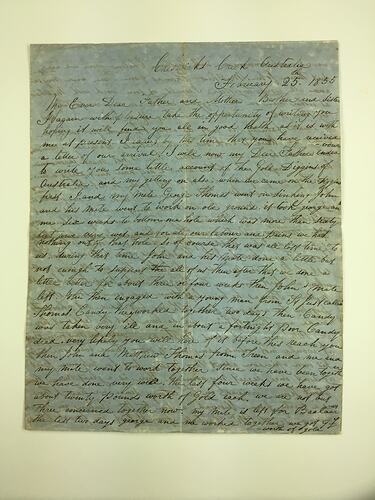 Creswicks Creek Australia
February 25th 1855
My Ever Dear Father and Mother Brother and Sister
I again with pleasure take the opportunity of writing you
hoping it will find you all in good health as it is with
me at present I by this time that you have received
a letter of our arrival I will now my Dear Father
to write you some little account of the Gold Diggins of
Australia and my getting on also when we came on the Diggins
first I and my Mate George Thomas went on John
and his Mate went to work on old ground it took George and
me six weeks to bottom one hole which was more than
feet and for all our labour and pains we had
nothing out of that hole so of course this was all lost time to
us during this time John and his Mate done a little but
not enough to support the all of us then after this we done a
little better for about three or four weeks then John's Mate
left John then engaged with a young man from St Just called
Thomas Candy they worked together two days then Candy
was taken very ill and in about a fortnight Poor Candy
died very likely you will hear of it before this reach you
then John and Matthew Thomas from Treen and me and
my Mate went to work together since we have been together
we have done very well the last four weeks we have got
about twenty Pounds worth of Gold each. we are not but
three concerned together now my Mate is left for
the last two days george and me worked together we got
worth of gold